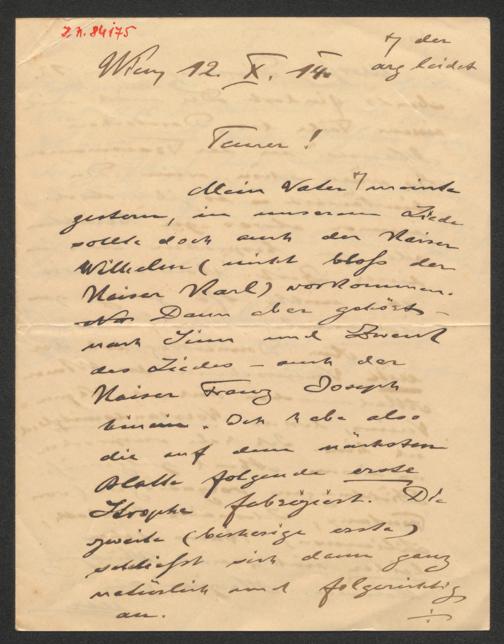 Z.N. 84175
+) der
arg leidet
Wien 12. X. 14.
Teurer!
Mein Vater +) meinte
gestern, in unserem Liede
sollte doch auch der Kaiser
Wilhelm (nicht bloß der
Kaiser Karl) vorkommen.
Dann aber gehört –
nach Sinn und Zweck
des Liedes – auch der
Kaiser Franz Joseph
hinein. Ich habe also
die auf dem nächsten
Blatte folgende erste
Strophe fabriziert. Die
zweite (bisherige erste)
schließt sich dann ganz
natürlich und folgerichtig
an.